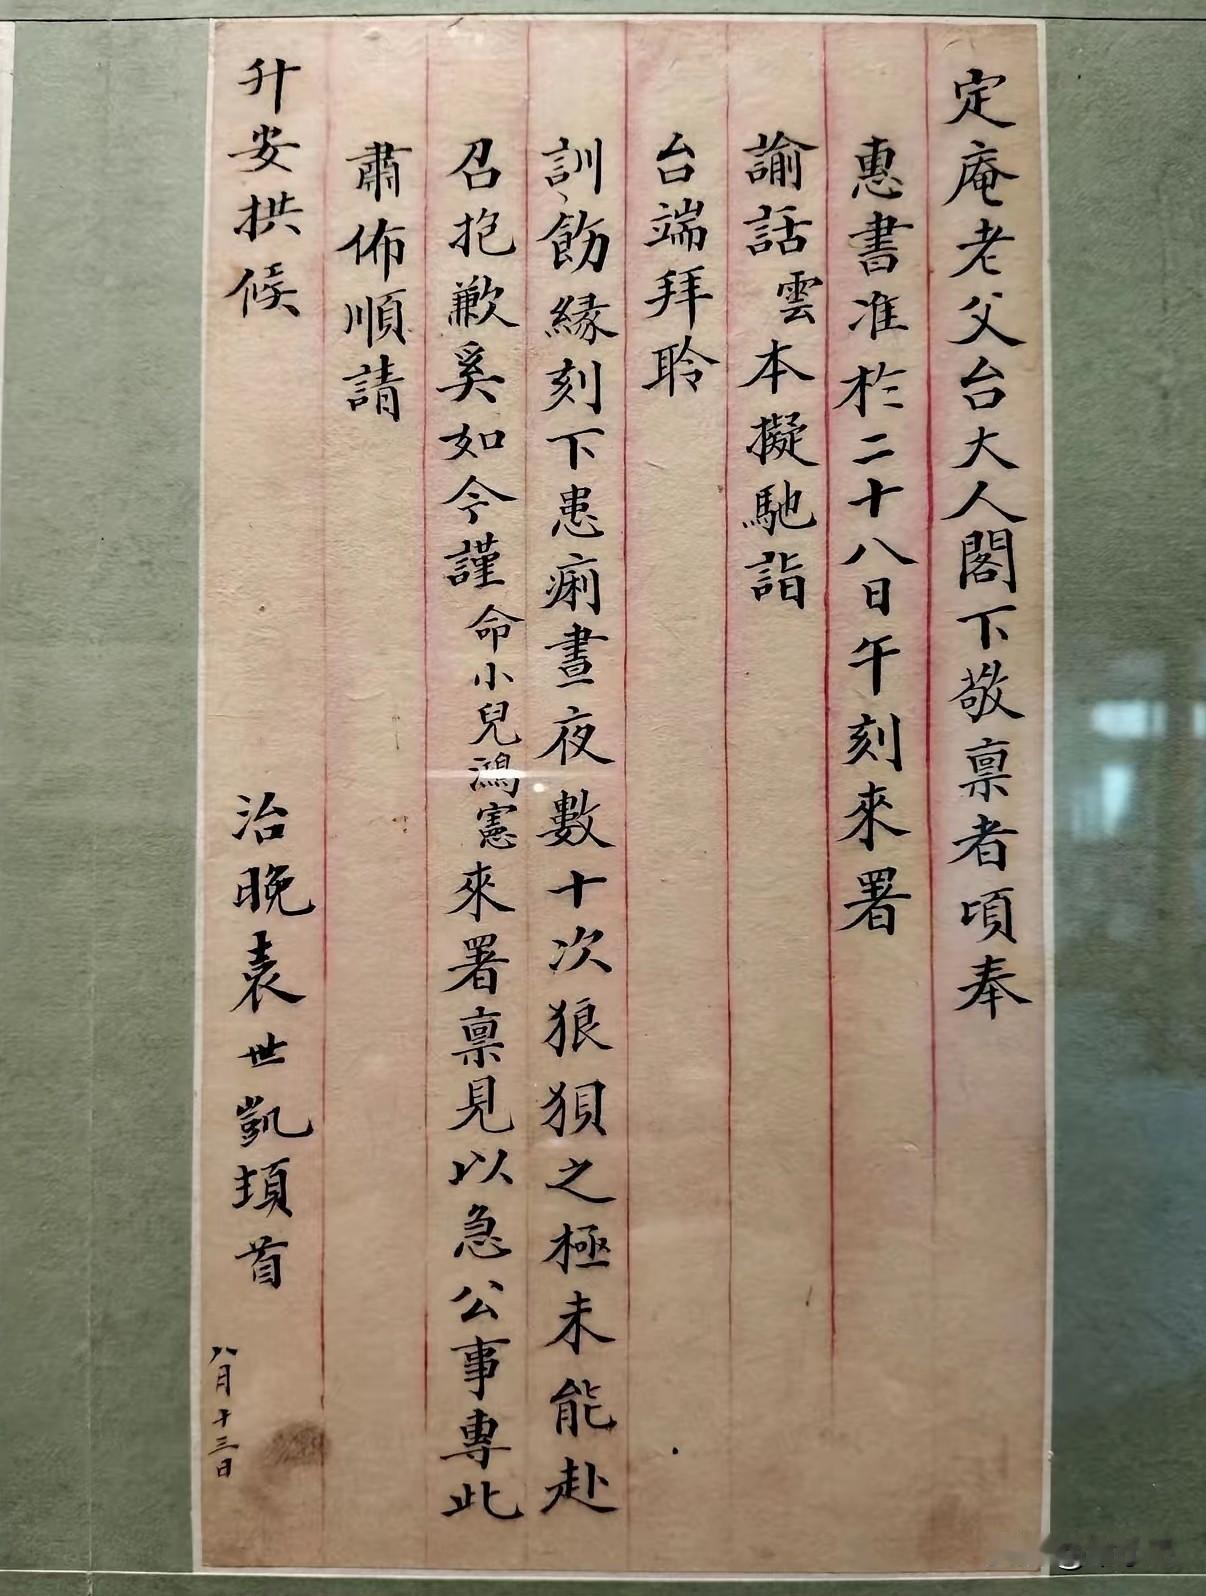 定庵老父台大人閣下敬禀者頃奉
惠書准於二十八日午刻來署
諭話雲本擬馳詣
台端拜聆
訓飭緣刻下患痢晝夜數十次狼狽之極未能赴
召抱歉奚如今謹命小兒鴻憲來署禀見以急公事專此
肅佈順請
升安拱候
治晚袁世凱頓首
八月十三日